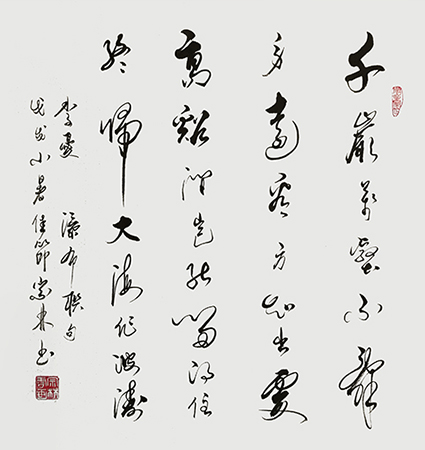 千巖萬壑不辭
勞遠看方知出處
高谿澗豈能留得住
終歸大海作波濤
李 瀑布聯句
戊戌小暑佳節 书